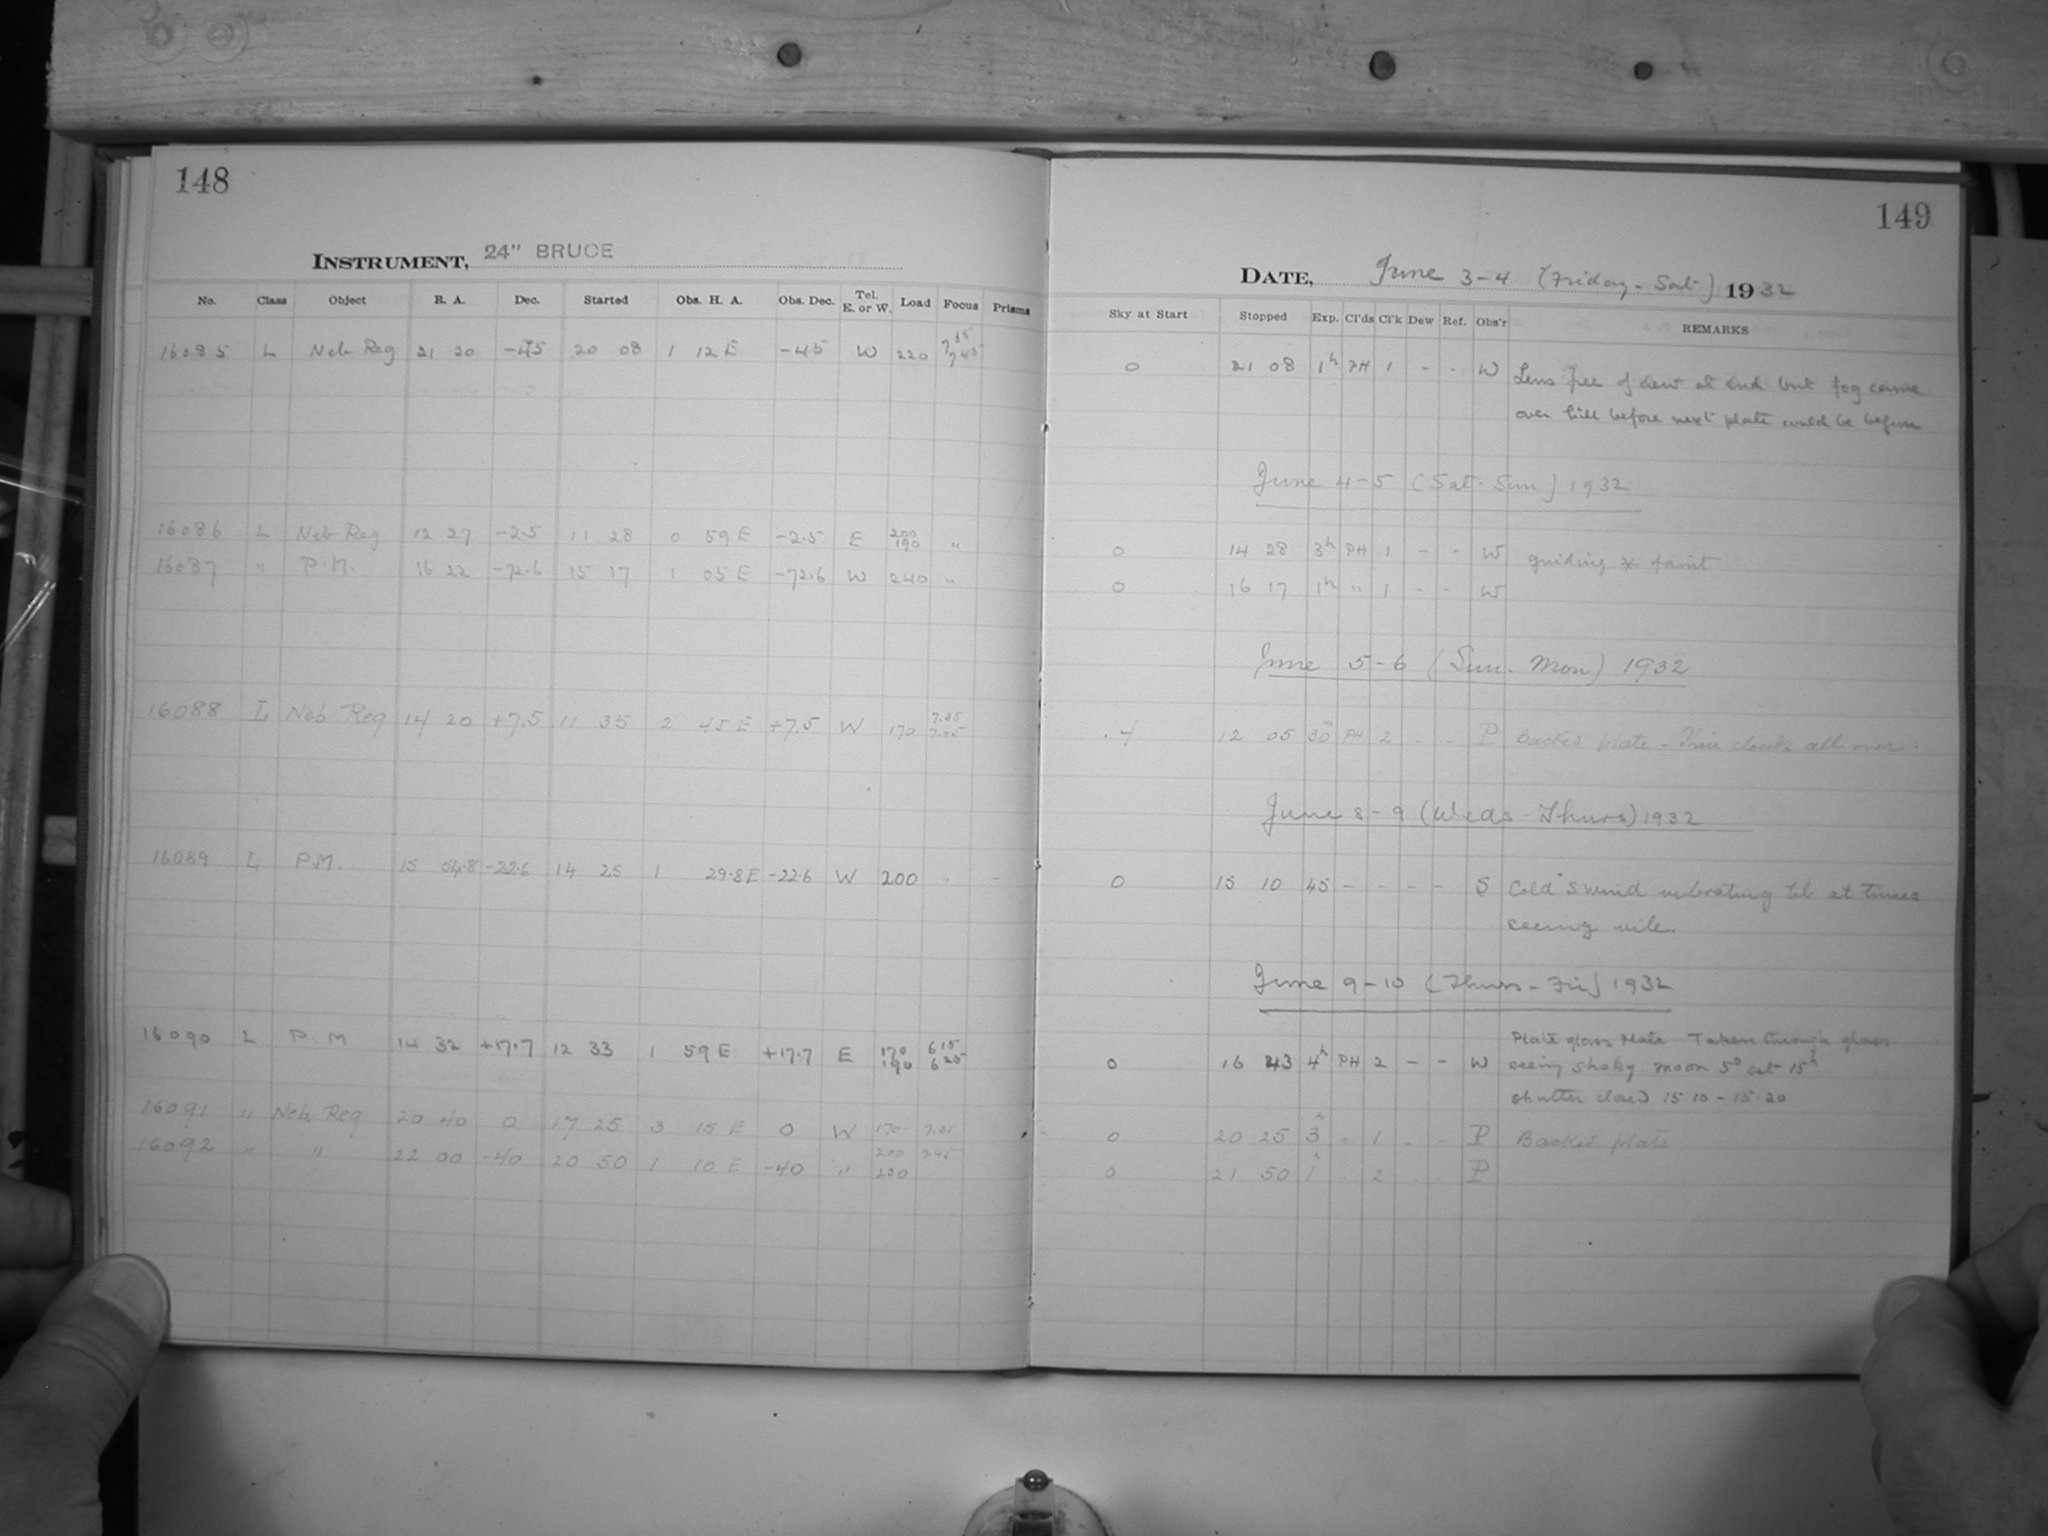 148
INSTRUMENT, 24" BRUCE
No. Class Object R. A. Dec. Started Obs. H. A. Obs. Dec. Tel. E. or W. Load Focus Prisms
16085 L Neb Reg 21 20 -45 20 08 1 12 E -45 W 220 7.35 7.45
16086 L Neb Reg 12 27 -2.5 11 28 0 59 E -2.5 E 200 190 "
16087 " P.M. 16 22 -72.6 15 17 1 05 E -72.6 W 240 "
16088 L Neb Reg 14 20 +7.5 11 35 2 45 E +7.5 W 170 7.35 7.45
16089 L P.M. 15 54.8 -22.6 14 25 1 29.8 E -22.6 W 200 " -
16090 L P.M 14 32 +17.7 12 33 1 59 E +17.7 E 170 190 6 15 6 25
16091 " Neb Reg 20 40 0 17 25 3 15 E 0 W 170- 7.35
16092 " " 22 00 -40 20 50 1 10 E -40 " 200 230 7.45
149
DATE, June 3-4 (Friday-Sat) 1932
Sky at Start Stopped Exp. Cl'ds Cl'k Dew Ref. Obs'r REMARKS
0 21 08 1h PH 1 - - W Lens free of dew at end but fog came
over hill before next plate could be begun
June 4-5 (Sat-Sun) 1932
0 14 28 3h PH 1 - - W guiding * faint
0 16 17 1h " 1 - - W
June 5-6 (Sun-Mon) 1932
.4 12 05 30m PH 2 - - P Backed plate - Thin clouds all over.
June 8-9 (Weds-Thurs) 1932
0 15 10 45 - - - - S Cold S wind vibrating tel at times
seeing vile.
June 9-10 (Thurs-Fri) 1932
Plate glass plate Taken through glass
0 16 43 4h PH 2 - - W seeing shaky. moon 5° at 15h
shutter closed 15 10 - 15.20
0 20 25 3h " 1 - - P Backed plate
0 21 50 1h " 2 - - P